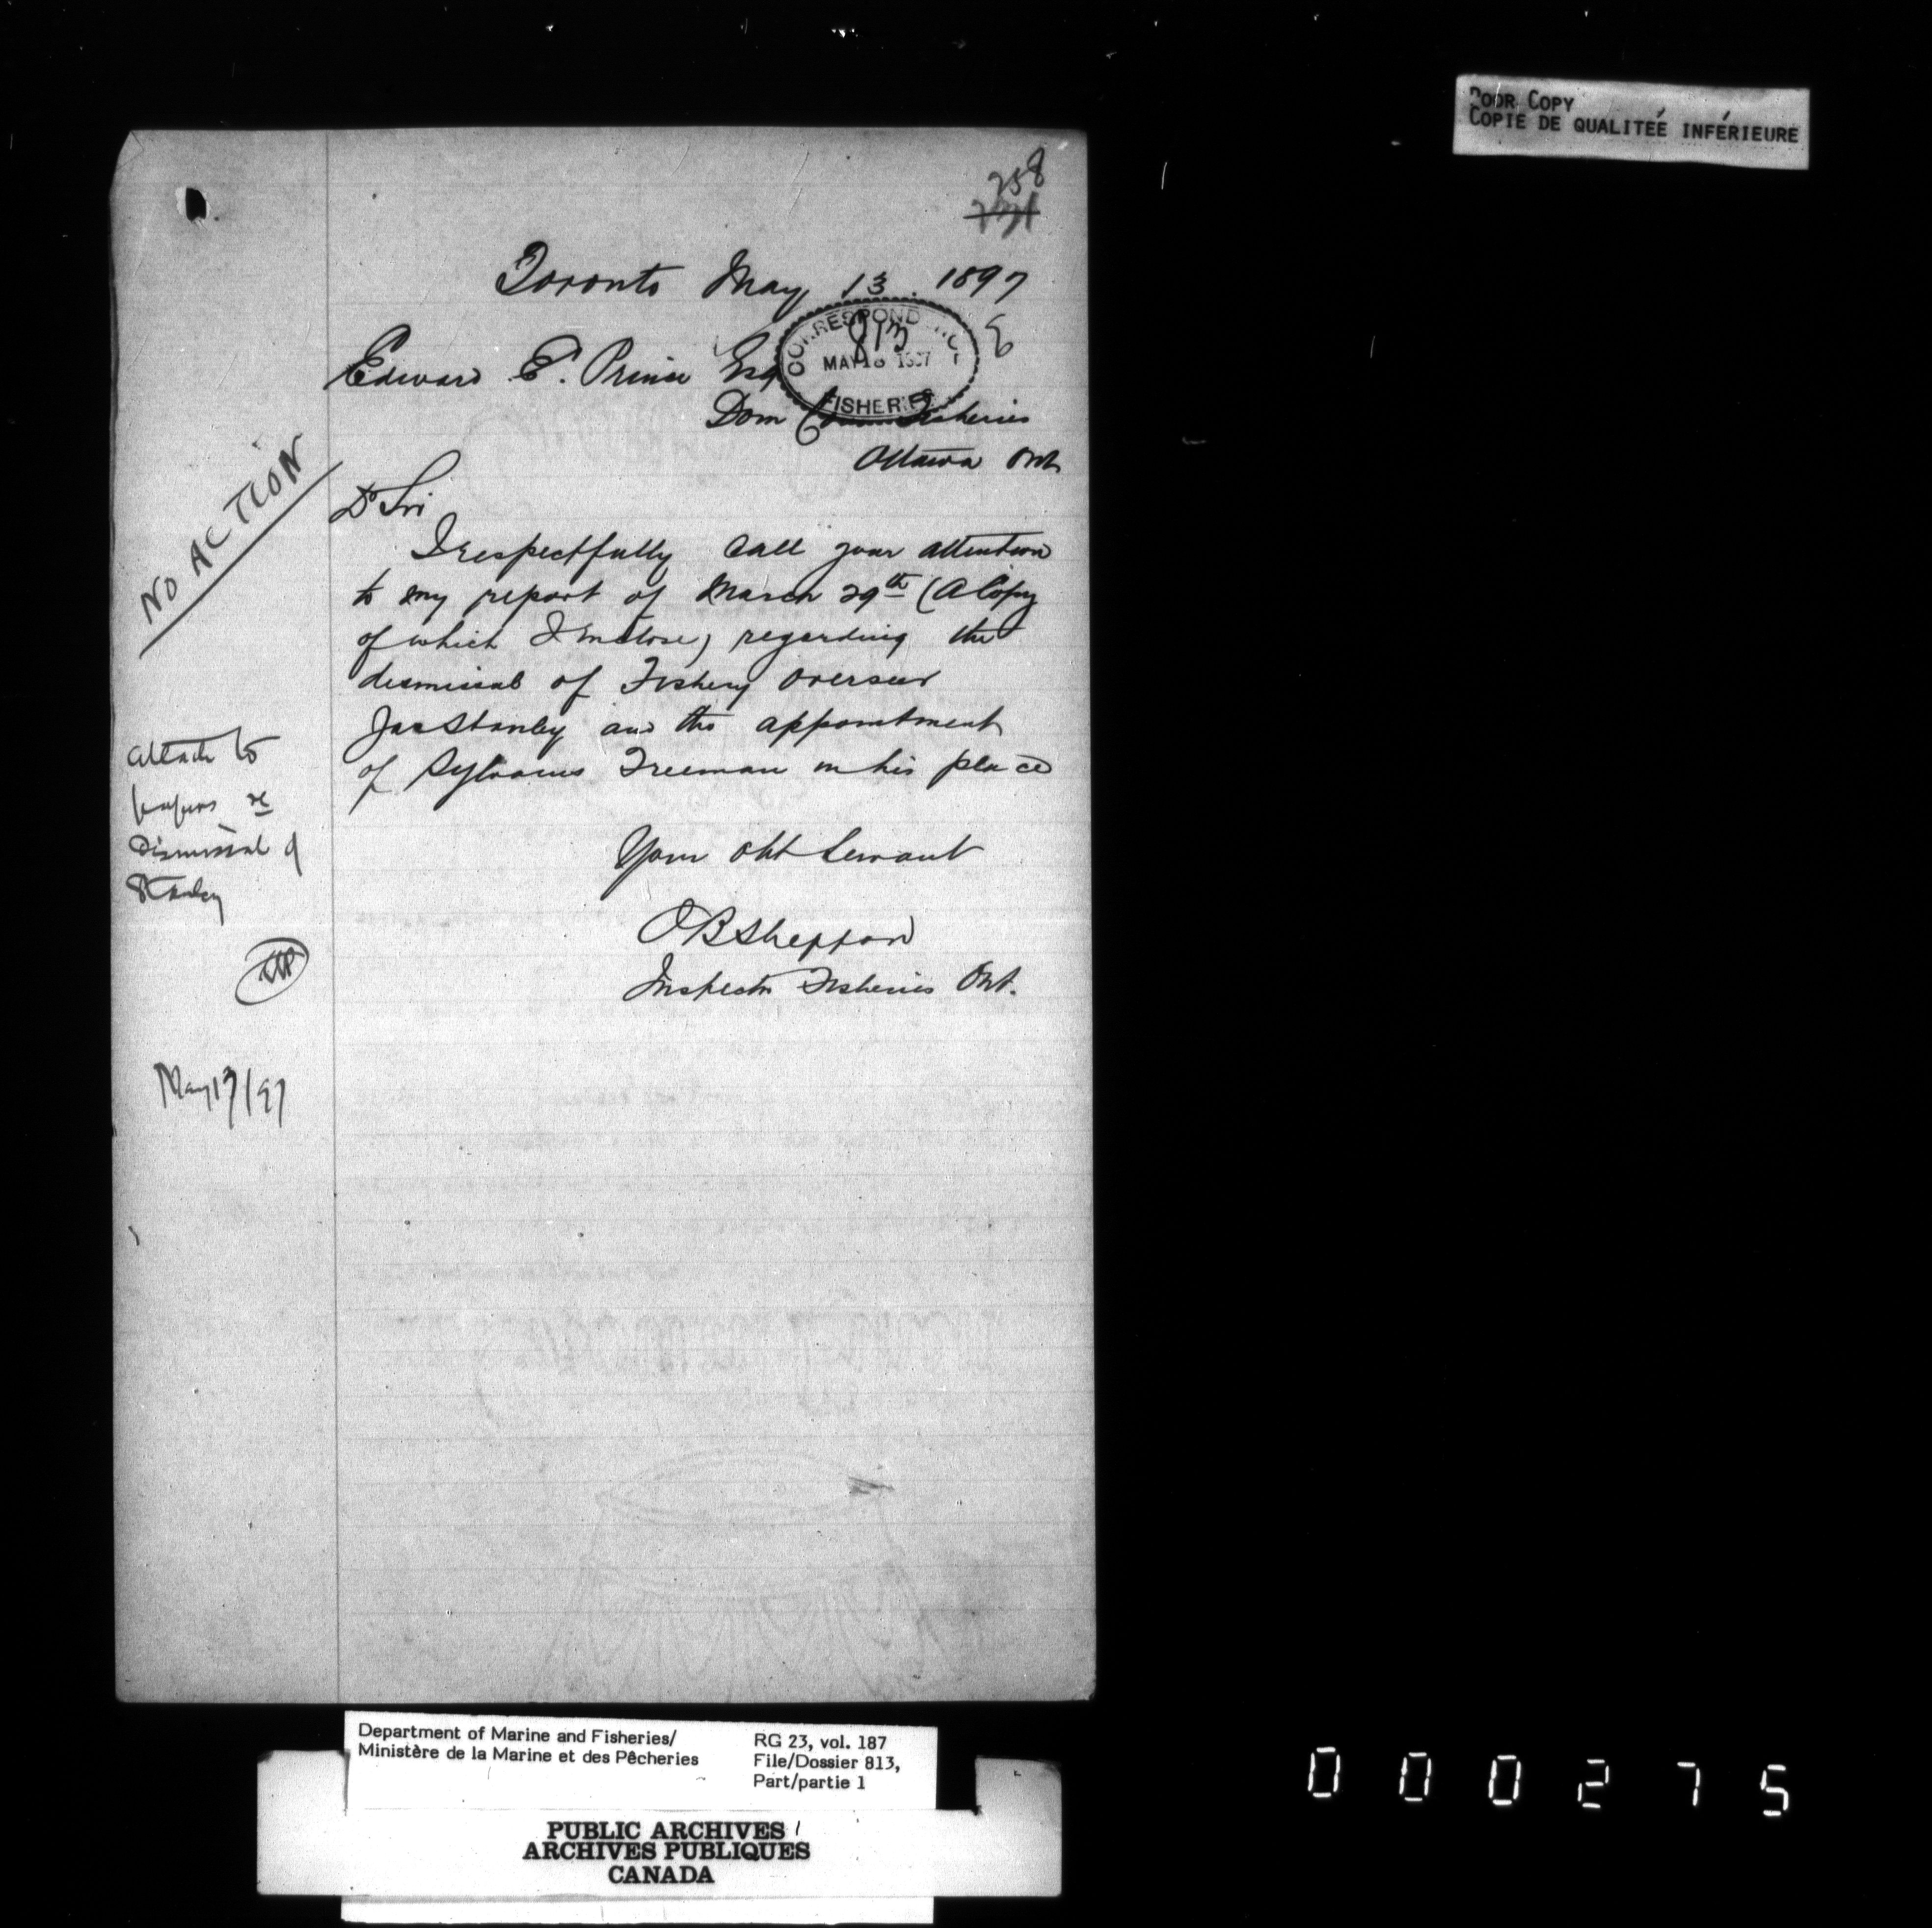 POOR COPY
COPIE DE QUALITEÉ INFÉRIEURE
258
Toronto May 13. 1897
CORRESPONDENCE
813
MAY 18 1897
FISHERIES
Edward E. Prince Esq
Dom Comm Fisheries
Ottawa Ont
Dr Sir
I respectfully call your attention
to my report of March 29th (A Copy
of which I enclose) regarding the
dismissal of Fishery Overseer
Jas Stanley and the appointment
of Sylvanus Freeman in his place
Your Obt Servant
O B Sheppard
Inspector Fisheries Ont.
NO ACTION
attach to
papers re
Dismissal of
Stanley
May 17/97
Department of Marine and Fisheries/
Ministère de la Marine et des Pêcheries
RG 23, vol. 187
File/Dossier 813,
Part/partie 1
PUBLIC ARCHIVES
ARCHIVES PUBLIQUES
CANADA
000275